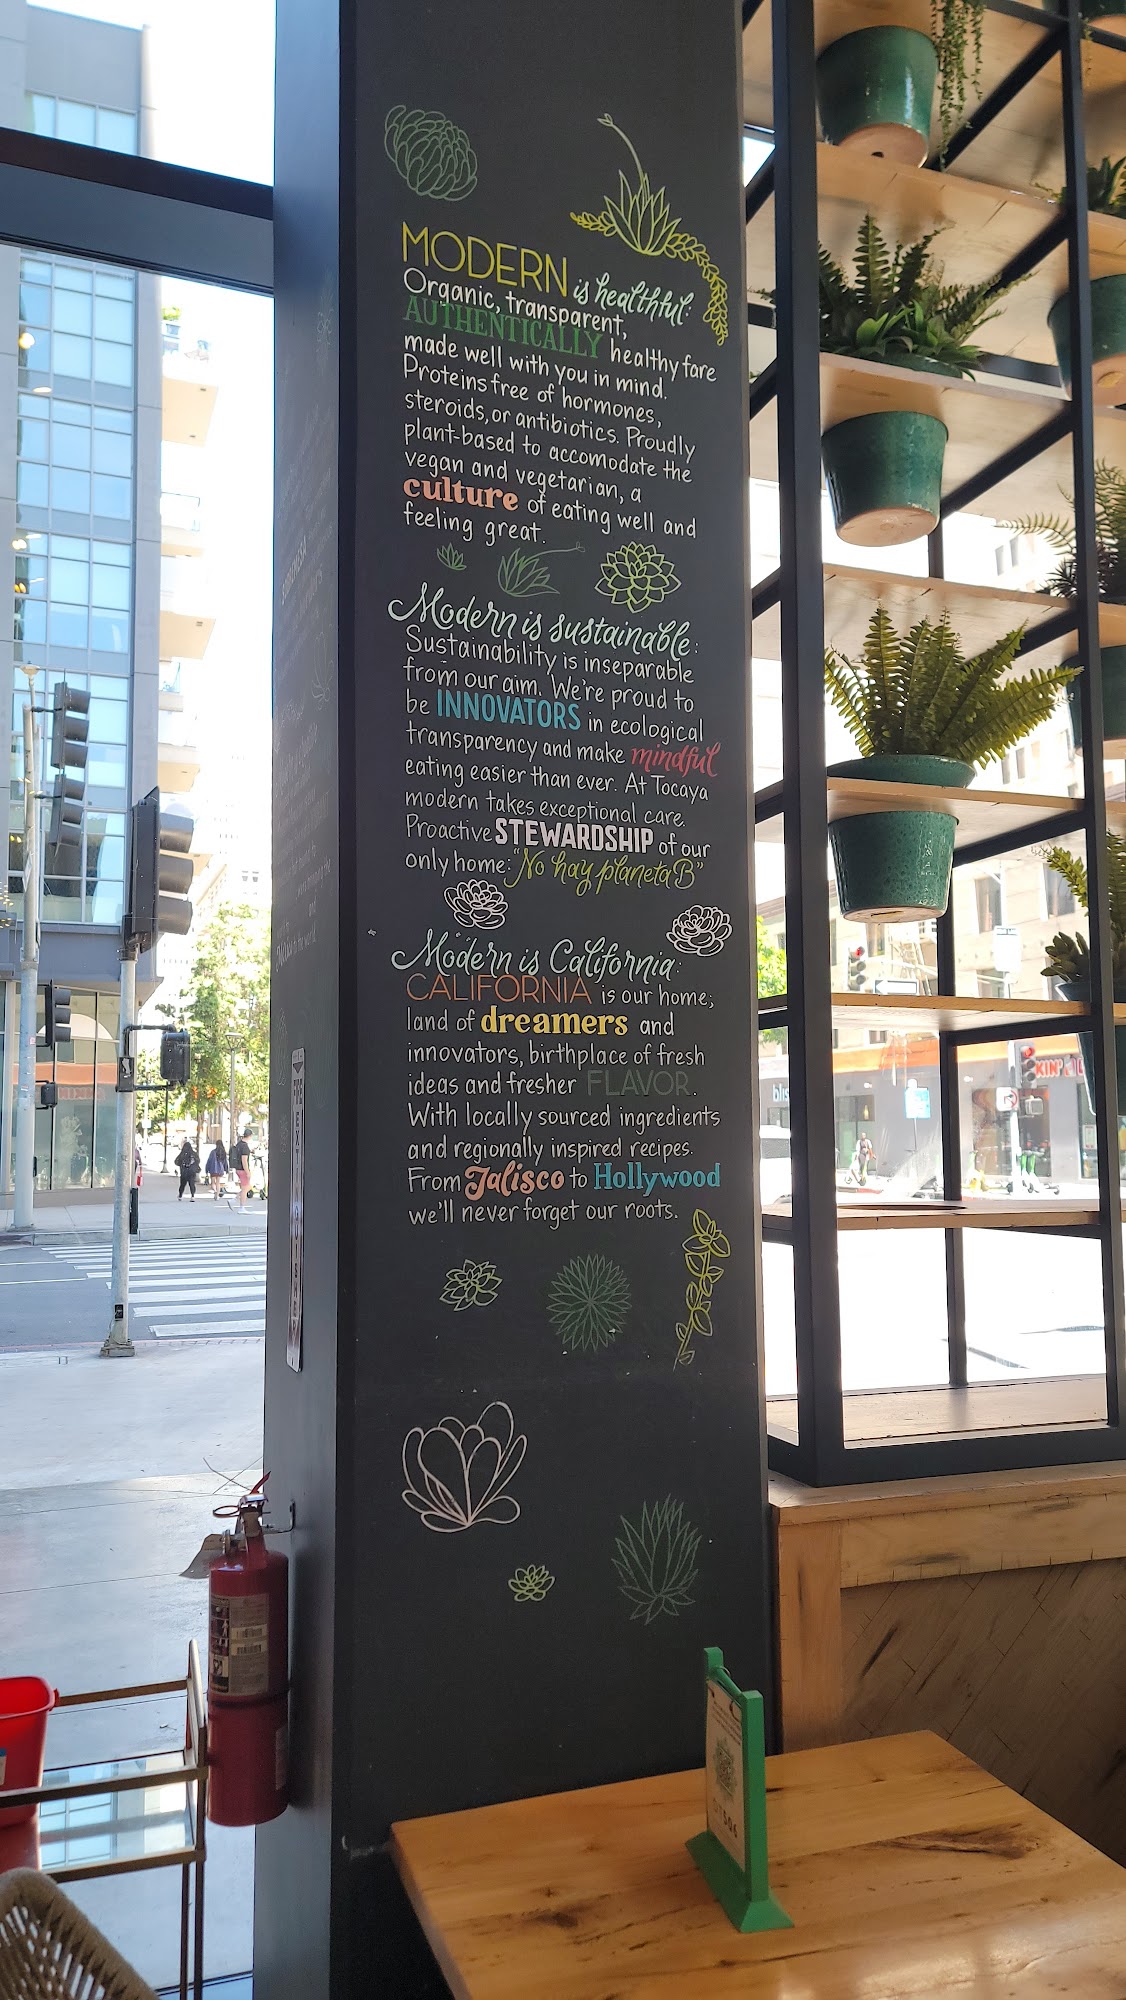 MODERN is healthful:
Organic, transparent,
AUTHENTICALLY healthy fare
made well with you in mind.
Proteins free of hormones,
steroids, or antibiotics. Proudly
plant-based to accomodate the
vegan and vegetarian, a
culture of eating well and
feeling great.
Modern is sustainable:
Sustainability is inseparable
from our aim. We're proud to
be INNOVATORS in ecological
transparency and make mindful
eating easier than ever. At Tocaya
modern takes exceptional care.
Proactive STEWARDSHIP of our
only home: "No hay planeta B"
Modern is California:
CALIFORNIA is our home;
land of dreamers and
innovators, birthplace of fresh
ideas and fresher FLAVOR.
With locally sourced ingredients
and regionally inspired recipes.
From Jalisco to Hollywood
we'll never forget our roots.
FIRE EXTINGUISHER